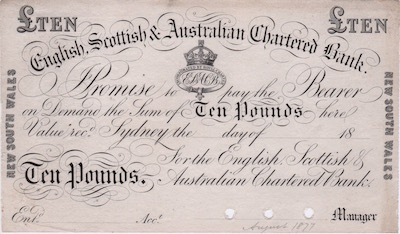 £TEN £TEN
English, Scottish & Australian Chartered Bank.
I Promise to pay the Bearer
on Demand the Sum of Ten Pounds here
Value recd. Sydney the day of 18
For the English, Scottish &
Ten Pounds. Australian Chartered Bank.
Ent. Acct. Manager
August 1877
NEW SOUTH WALES
NEW SOUTH WALES